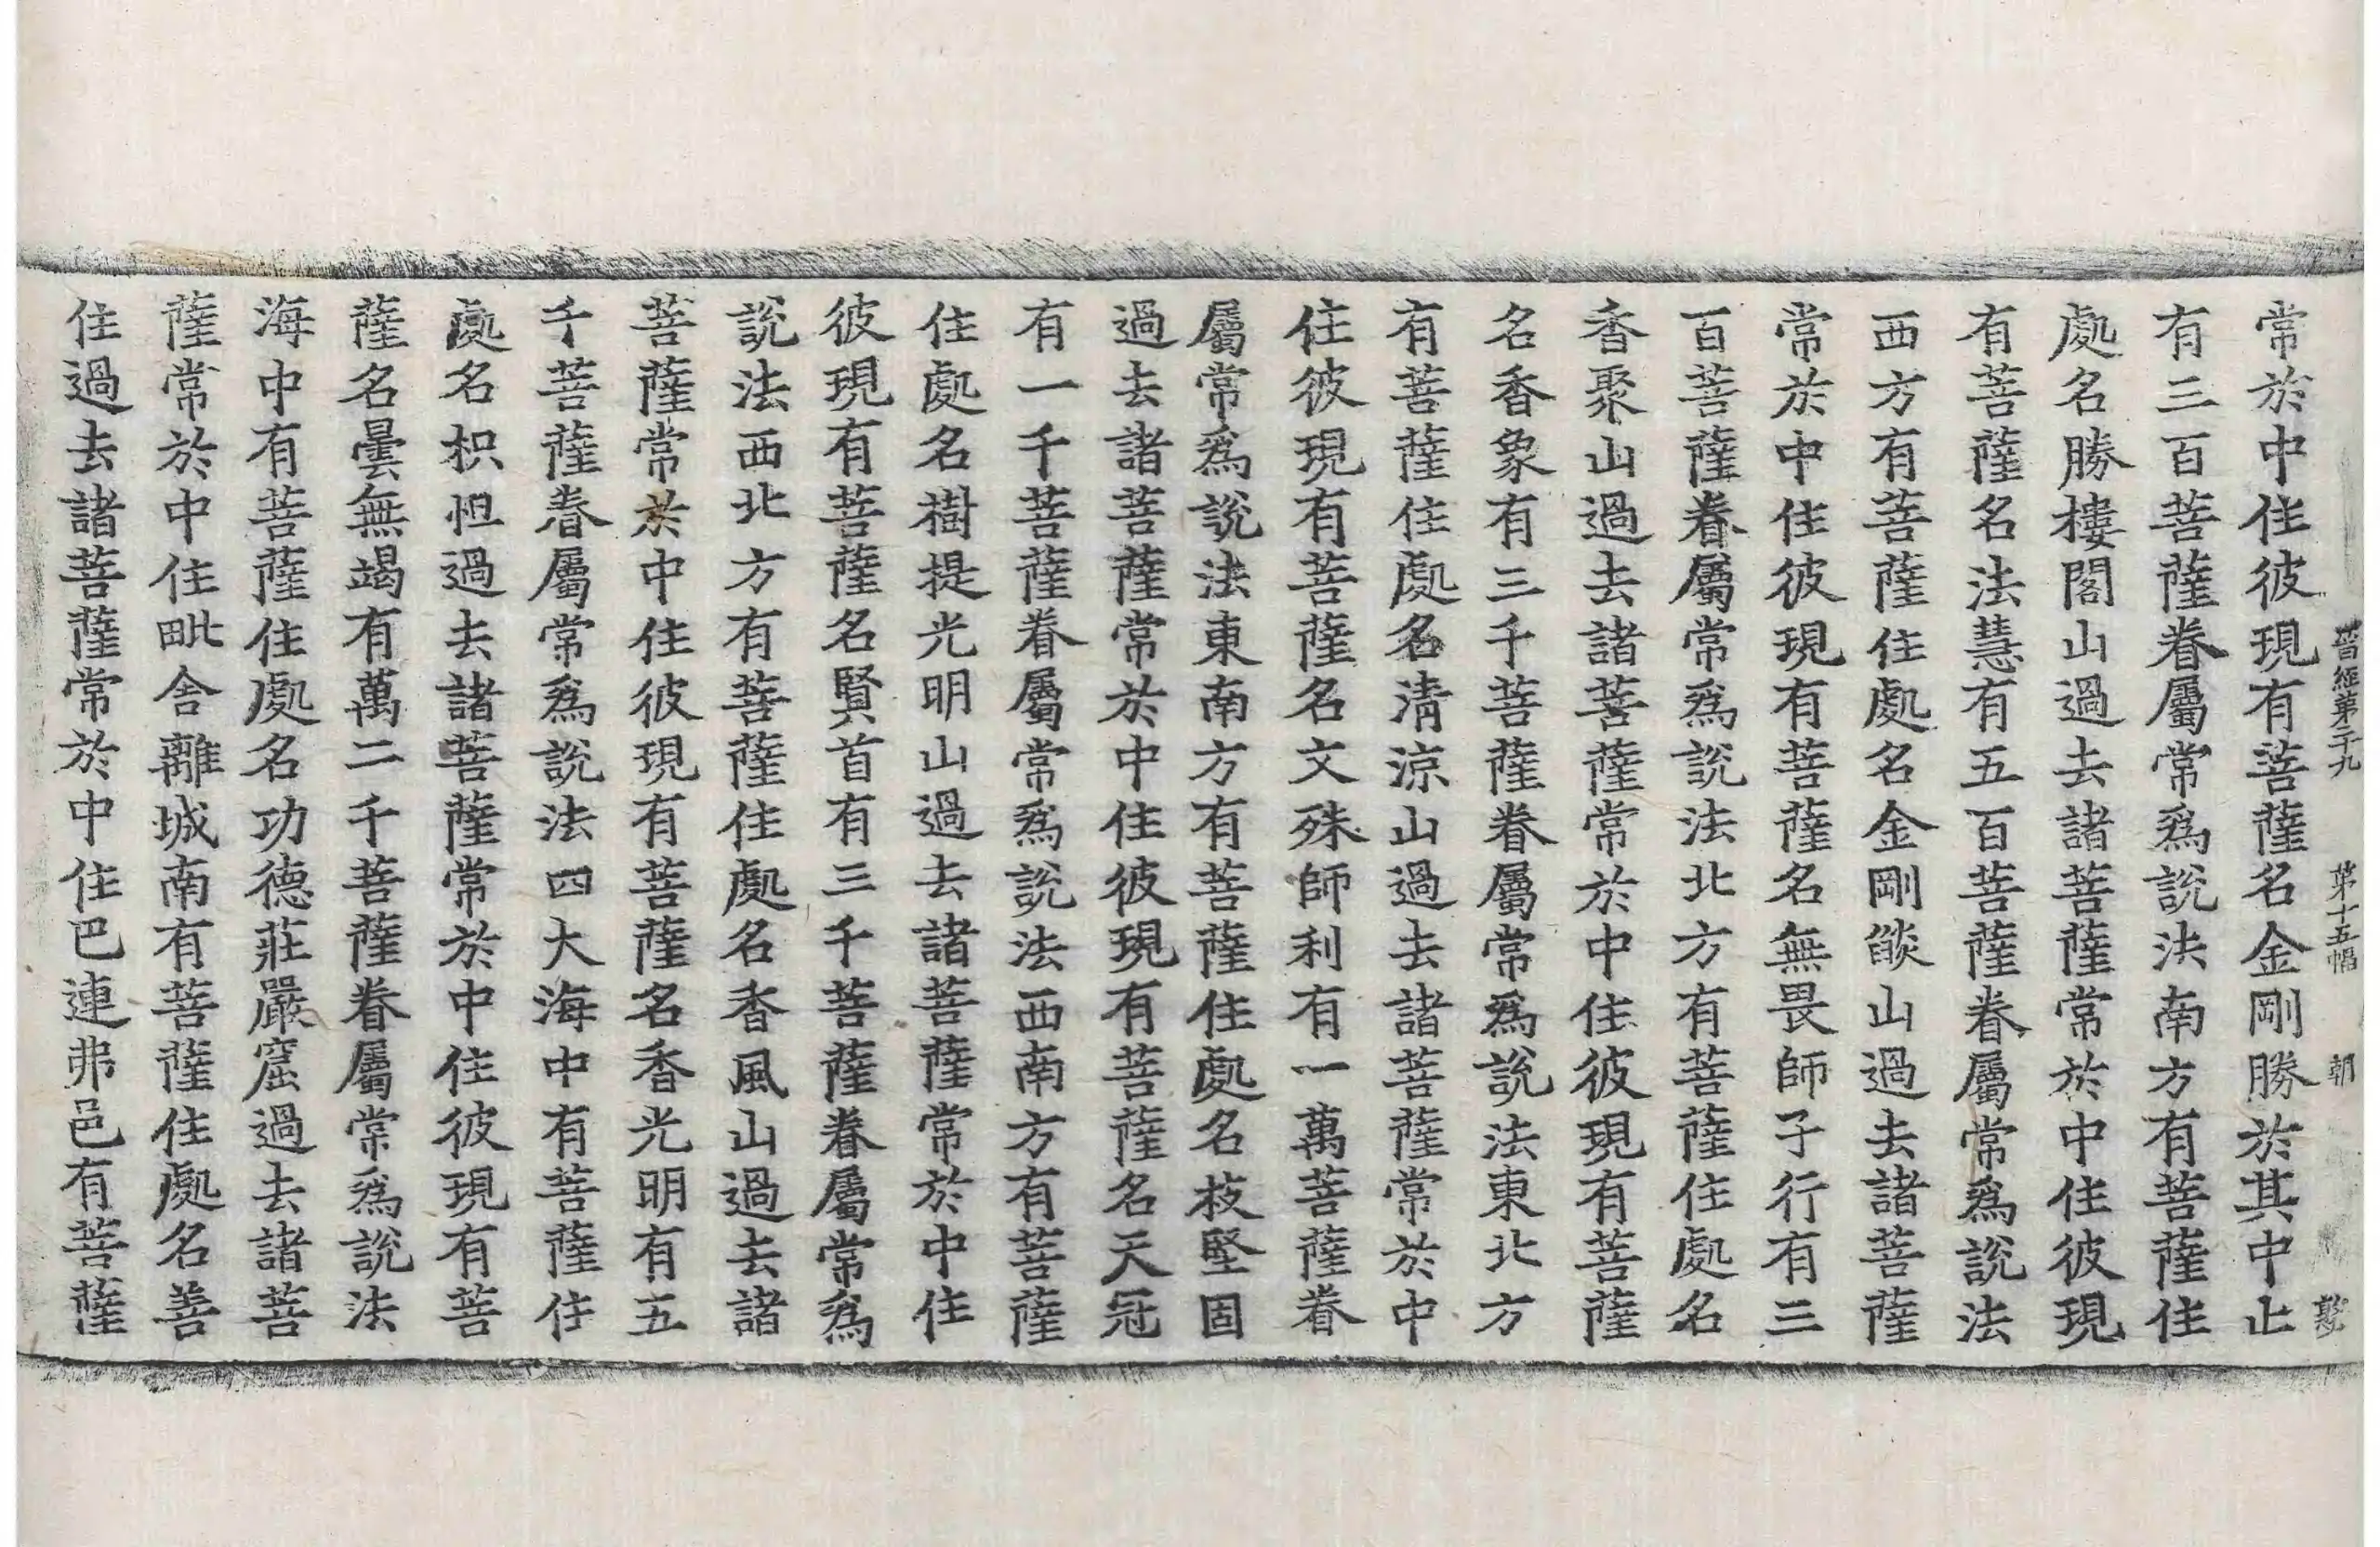 晉經第二十九 第十五幅 朝
常於中住彼現有菩薩名金剛勝於其中止
有三百菩薩眷屬常爲說法南方有菩薩住
處名勝樓閣山過去諸菩薩常於中住彼現
有菩薩名法慧有五百菩薩眷屬常爲說法
西方有菩薩住處名金剛燄山過去諸菩薩
常於中住彼現有菩薩名無畏師子行有三
百菩薩眷屬常爲說法北方有菩薩住處名
香聚山過去諸菩薩常於中住彼現有菩薩
名香象有三千菩薩眷屬常爲說法東北方
有菩薩住處名清涼山過去諸菩薩常於中
住彼現有菩薩名文殊師利有一萬菩薩眷
屬常爲說法東南方有菩薩住處名枝堅固
過去諸菩薩常於中住彼現有菩薩名天冠
有一千菩薩眷屬常爲說法西南方有菩薩
住處名樹提光明山過去諸菩薩常於中住
彼現有菩薩名賢首有三千菩薩眷屬常爲
說法西北方有菩薩住處名香風山過去諸
菩薩常於中住彼現有菩薩名香光明有五
千菩薩眷屬常爲說法四大海中有菩薩住
處名枳怛過去諸菩薩常於中住彼現有菩
薩名曇無竭有萬二千菩薩眷屬常爲說法
海中有菩薩住處名功德莊嚴窟過去諸菩
薩常於中住毗舍離城南有菩薩住處名善
住過去諸菩薩常於中住巴連弗邑有菩薩